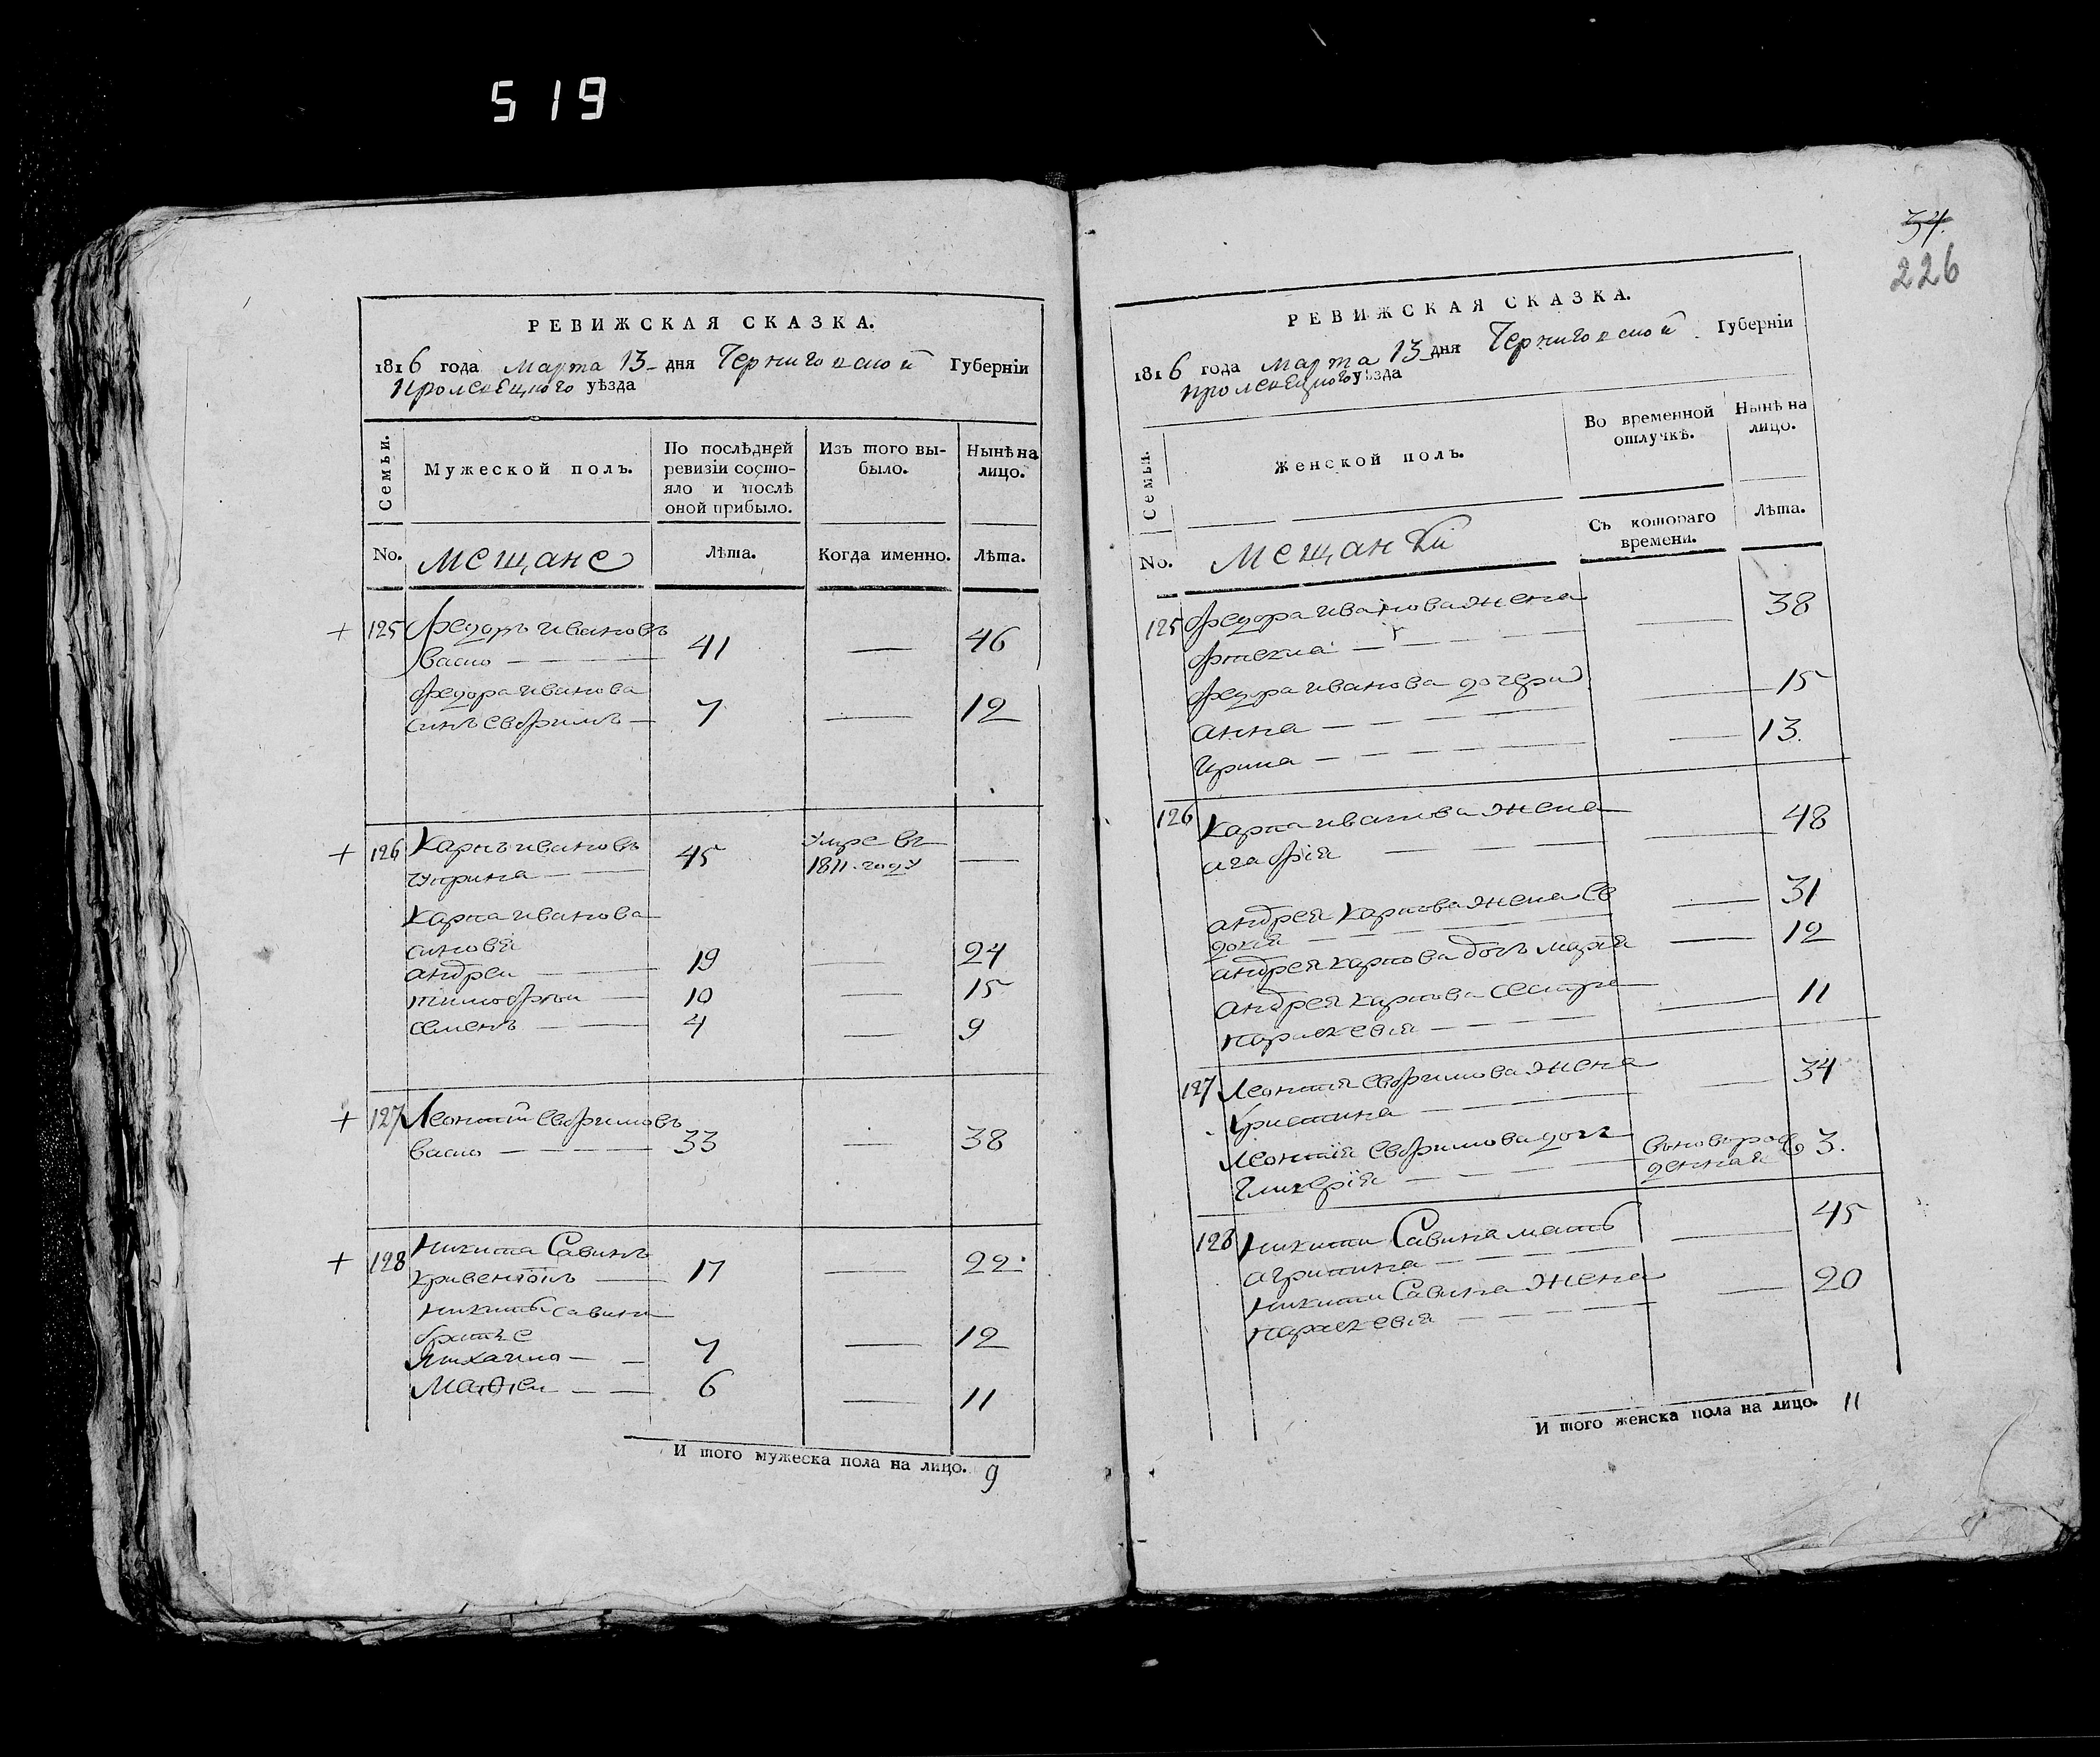 519
РЕВИЖСКАЯ СКАЗКА.
1816 года марта 13 дня Черниговской Губерніи
Кролевецкого уѣзда
Семьи.
Мужеской полъ.
По послѣдней
ревизіи состо-
яло и послѣ
оной прибыло.
Изъ того вы-
было.
Нынѣ на
лицо.
No.
мещане
Лѣта.
Когда именно.
Лѣта.
+ 125 Федоръ Ивановъ
Васко 41 46
Федора Иванова
синъ Евфимъ 7 12
+ 126 Карпъ Ивановъ умре въ
Чуприна 45 1811 году
Карпа Иванова
синовя
андреи 19 24
тимофеи 10 15
семенъ 4 9
+ 127 Леонтій Евфимовъ
Васко 33 38
+ 128 Никита Савинъ
17 22
Никиты Савина
братье
7 12
Матвеи 6 11
И того мужеска пола на лицо. 9
34.
226
РЕВИЖСКАЯ СКАЗКА.
1816 года марта 13 дня Черниговской Губерніи
Кролевецкого уѣзда
Семьи.
Женской полъ.
Во временной
отлучкѣ.
Нынѣ на
лицо.
No.
Мещанки
Съ котораго
времени.
Лѣта.
125 Федора Иванова жена 38
Фтекла
Федора Иванова дочери 15
анна
Ирина 13.
126 Карпа Иванова жена 48
агафія
андрея Карпова жена Ев 31
докія
андрея Карпова дочъ марія 12
андрея Карпова сестра 11
параскевія
127 Леонтія Евфимова жена 34
Христина
Леонтія Евфимова дочъ вновьрож 3.
Гликерія денная
128 Никити Савина мать 45
агрипина
Никити Савина жена 20
параскевія
И того женска пола на лицо. 11